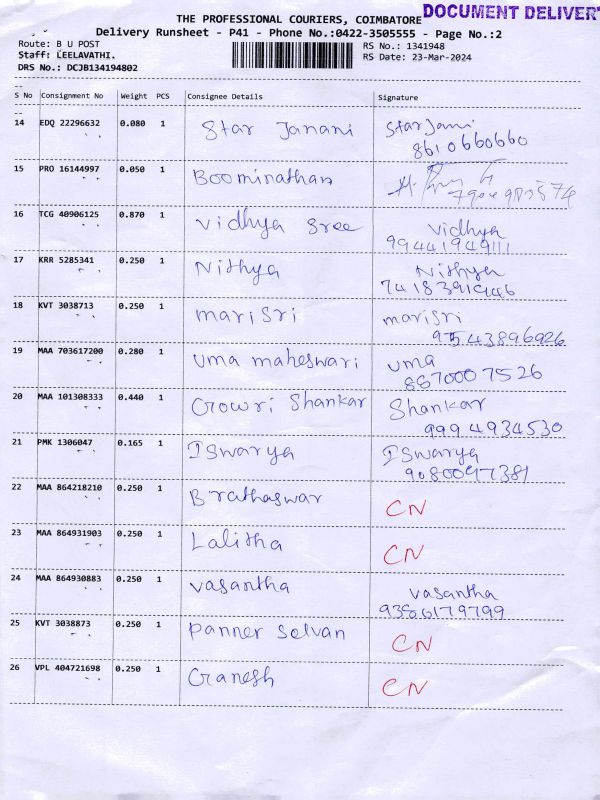 THE PROFESSIONAL COURIERS, COIMBATORE
DOCUMENT DELIVER
Delivery Runsheet - P41 - Phone No.:0422-3505555 - Page No.:2
Route: B U POST
RS No.: 1341948
Staff: LEELAVATHI.
RS Date: 23-Mar-2024
DRS No.: DCJB134194802
S No Consignment No Weight PCS Consignee Details Signature
14 EDQ 22296632 0.080 1 Star Janani Star Jani
8610660660
15 PRO 16144997 0.050 1 Boominathan
16 TCG 40906125 0.870 1 Vidhya Sree Vidhya
99441949111
17 KRR 5285341 0.250 1 Nithya Nithya
18 KVT 3038713 0.250 1 mariSri mariSri
9543896926
19 MAA 703617200 0.280 1 Uma maheswari uma
8870007526
20 MAA 101308333 0.440 1 Gowri Shankar Shankar
9994934530
21 PMK 1306047 0.165 1 ISwarya ISwarya
9080097381
22 MAA 864218210 0.250 1 Brathaswar CN
23 MAA 864931903 0.250 1 Lalitha CN
24 MAA 864930883 0.250 1 Vasantha Vasantha
9386179799
25 KVT 3038873 0.250 1 Panner Selvan CN
26 VPL 404721698 0.250 1 Ganesh CN